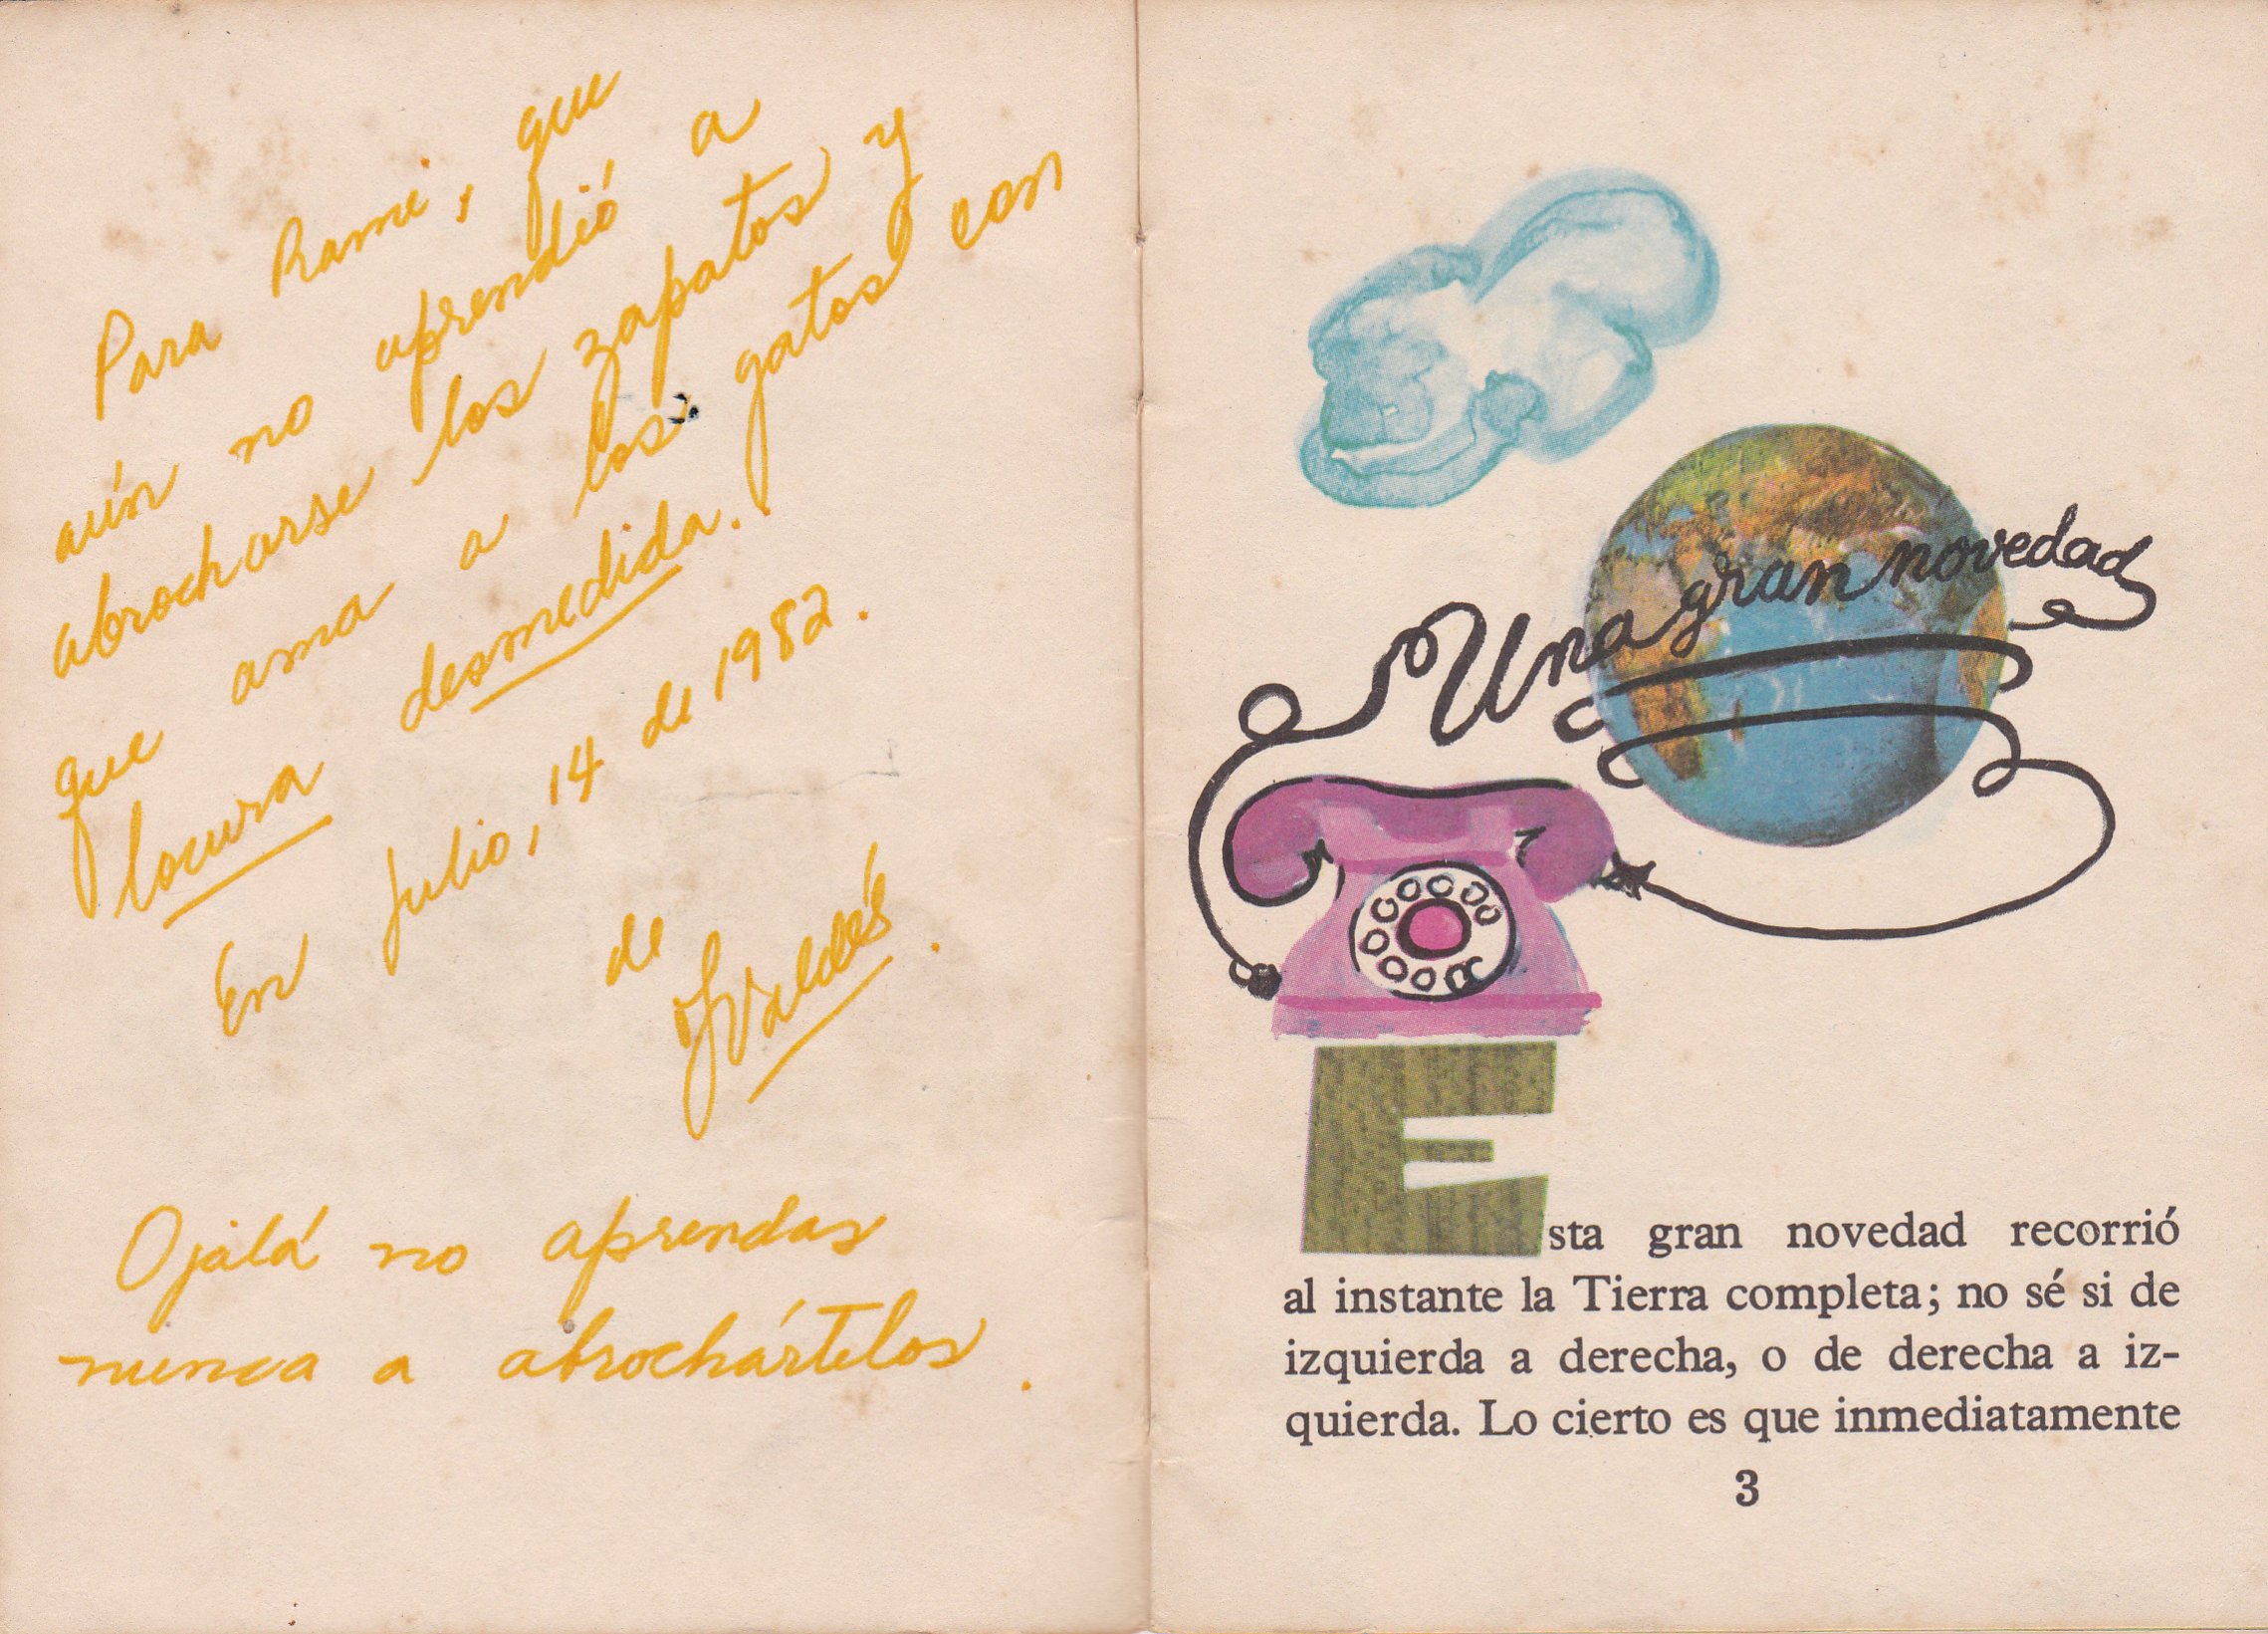 Para Rami, que
aún no aprendió a
abrocharse los zapatos y
que ama a los gatos con
locura desmedida.
En Julio, 14 de 1982.
de
Valdés.
Ojalá no aprendas
nunca a abrochártelos.
Una gran novedad
Esta gran novedad recorrió
al instante la Tierra completa; no sé si de
izquierda a derecha, o de derecha a iz-
quierda. Lo cierto es que inmediatamente
3